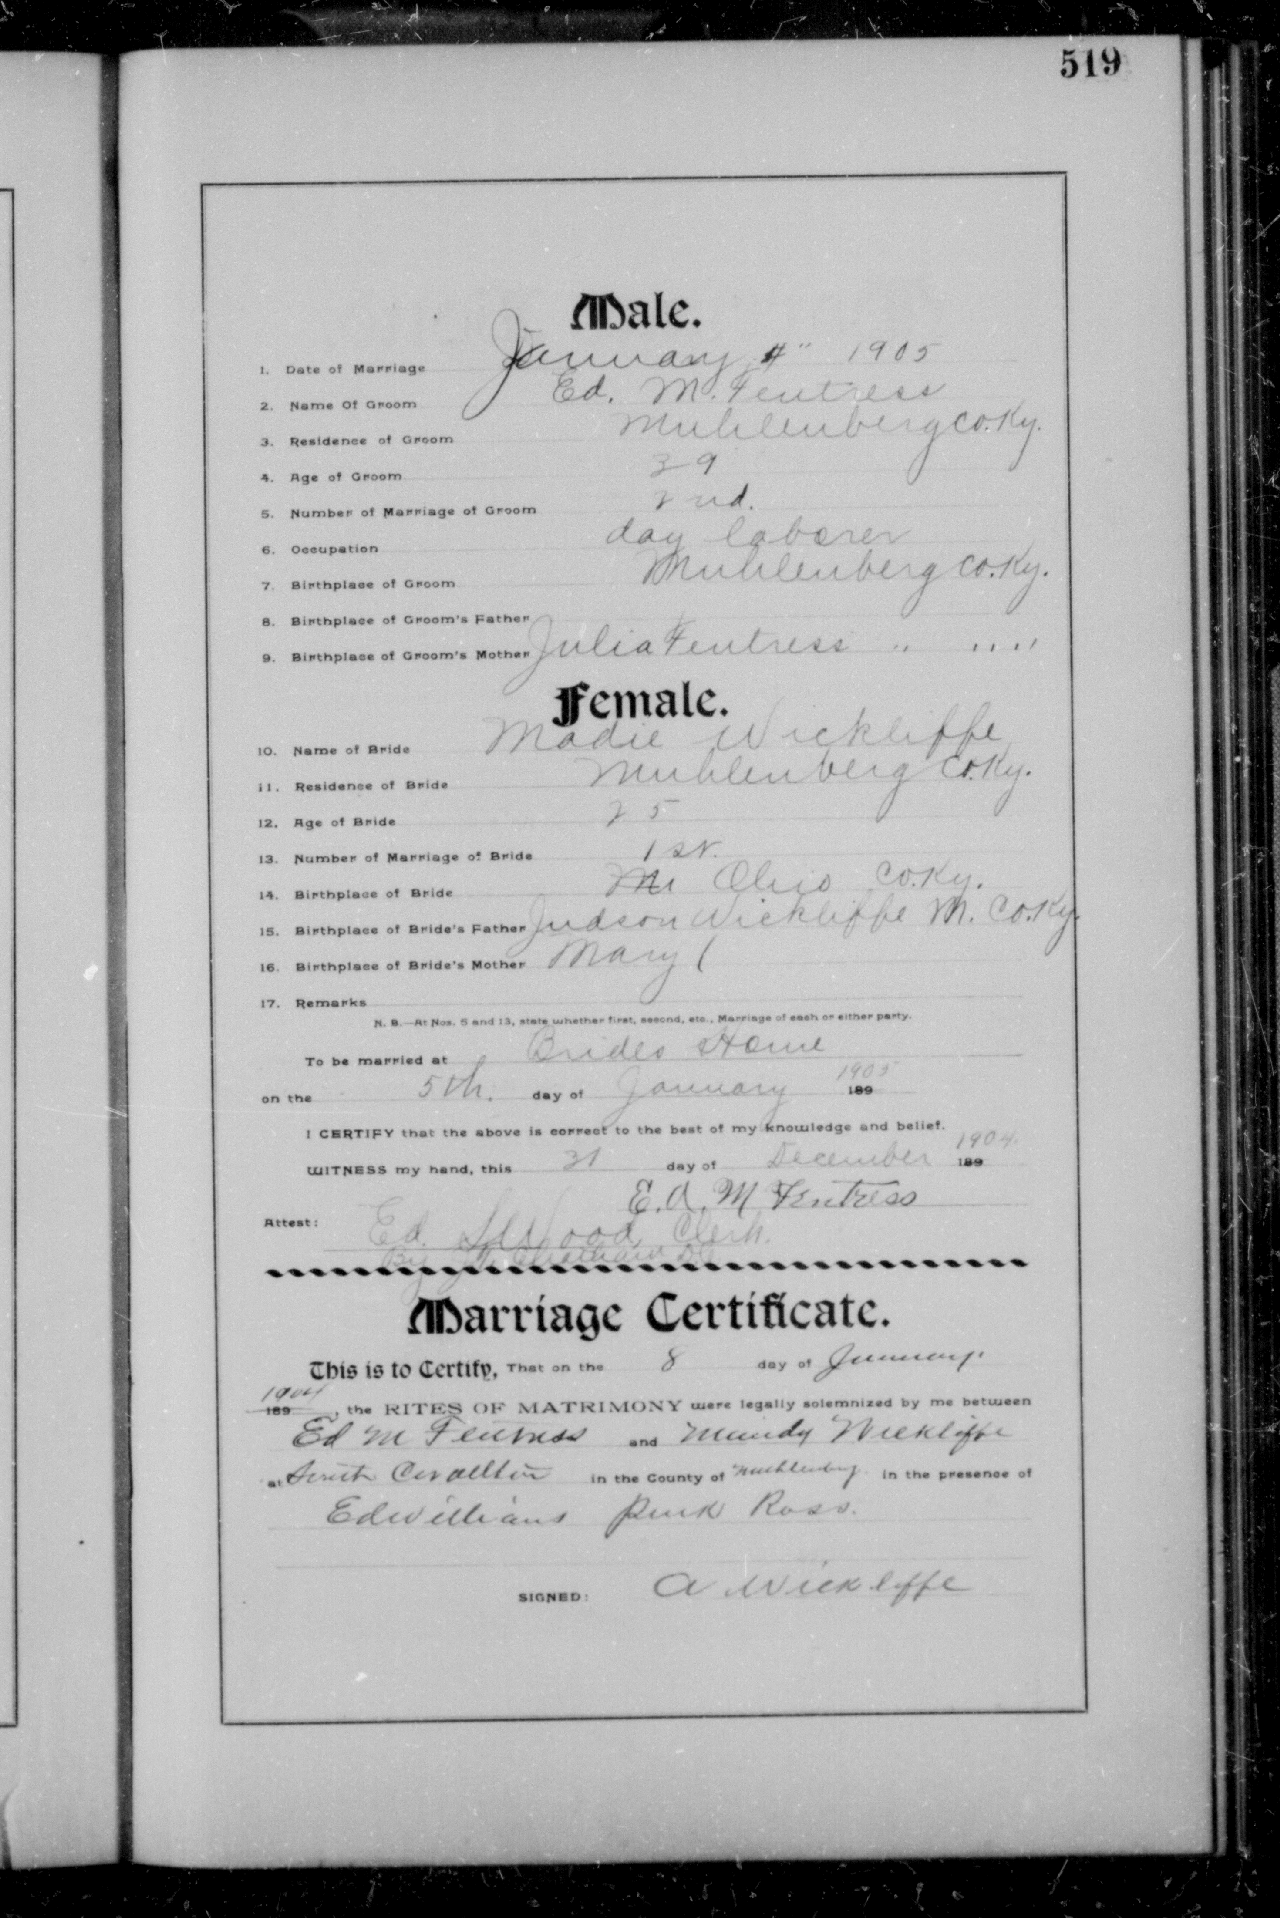 519
Male.
1. Date of Marriage January 4" 1905
2. Name Of Groom Ed. M. Fentress
3. Residence of Groom Muhlenberg Co. Ky.
4. Age of Groom 39
5. Number of Marriage of Groom 2nd.
6. Occupation day laborer
7. Birthplace of Groom Muhlenberg Co. Ky.
8. Birthplace of Groom's Father
9. Birthplace of Groom's Mother Julia Fentress " " "
Female.
10. Name of Bride Madie Wickliffe
11. Residence of Bride Muhlenberg Co. Ky.
12. Age of Bride 25
13. Number of Marriage of Bride 1st.
14. Birthplace of Bride Ohio Co. Ky.
15. Birthplace of Bride's Father Judson Wickliffe M. Co. Ky.
16. Birthplace of Bride's Mother Mary (
17. Remarks
N. B.—At Nos. 5 and 13, state whether first, second, etc., Marriage of each or either party.
To be married at Brides Home
on the 5th. day of January 189 1905
I CERTIFY that the above is correct to the best of my knowledge and belief.
WITNESS my hand, this 31 day of December 189 1904
E. d. M Fentress
Attest: Ed. S Wood Clerk.
By
Marriage Certificate.
This is to Certify, That on the 8 day of January.
189 1904, the RITES OF MATRIMONY were legally solemnized by me between
Ed M Fentress and Mundy Wickliffe
at South Carollton in the County of Muhlenberg in the presence of
Ed Williams Pink Ross.
SIGNED: A Wickliffe